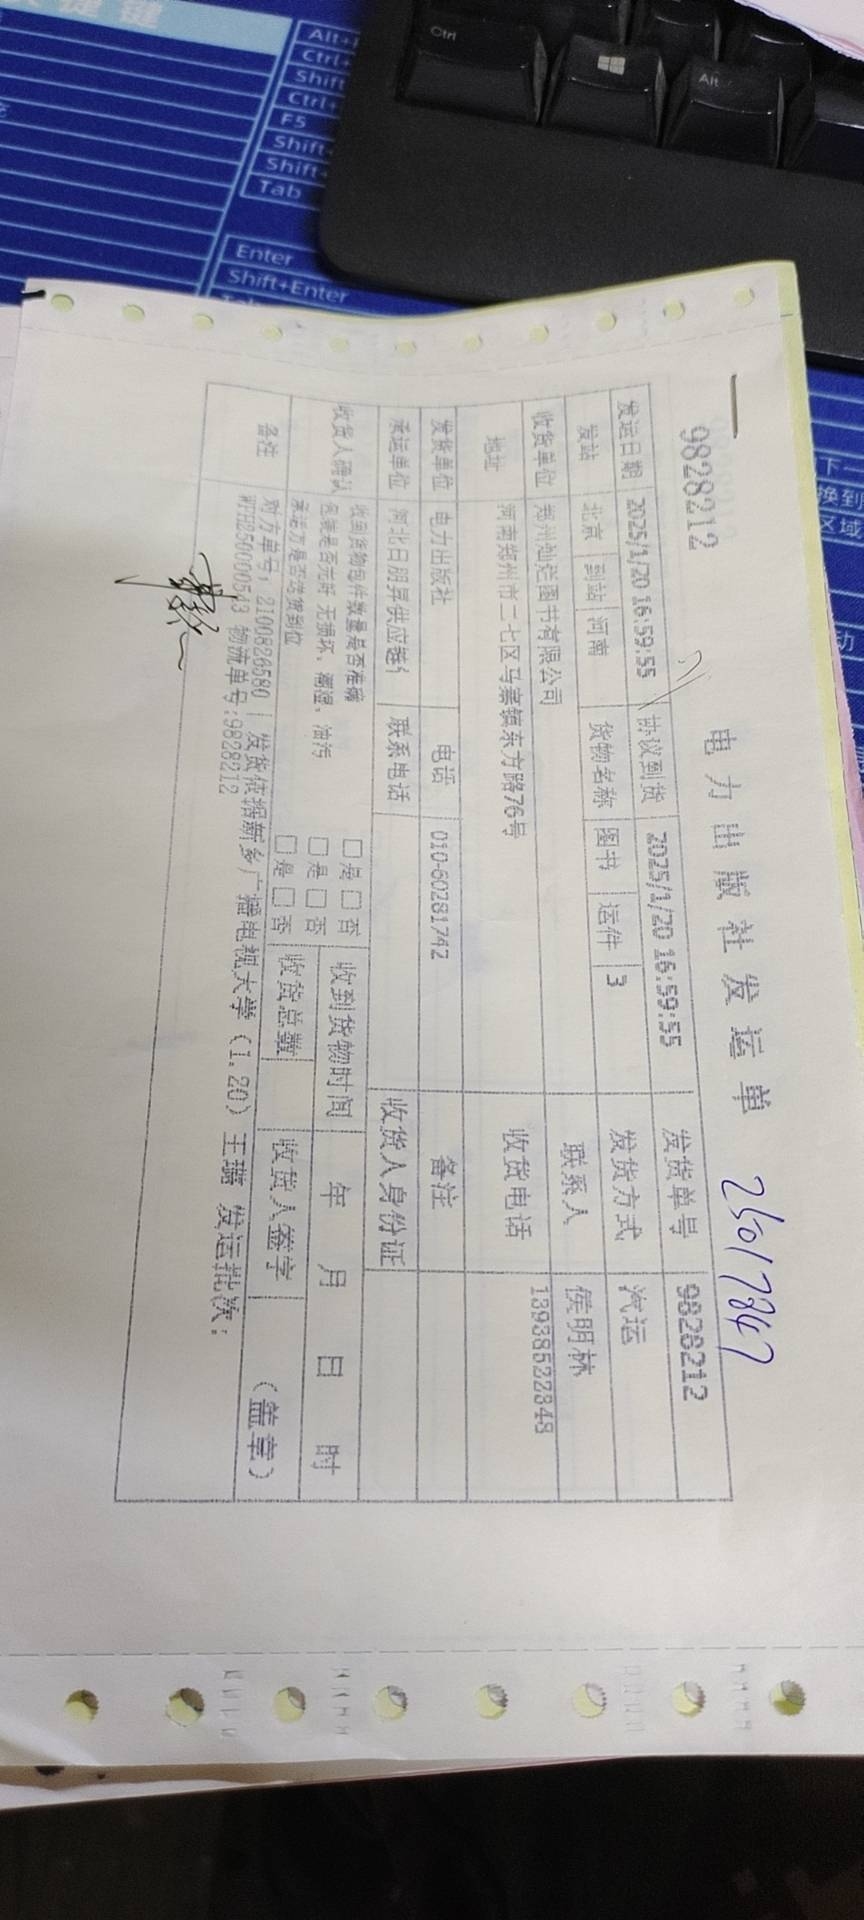 键键
Alt+
Ctrl+
Shift
Ctrl+
F5
Shift+
Shift+
Tab
Enter
Shift+Enter
Ctrl
Alt
下一
换到
区域
动
9828212
电力出版社发运单
25017847
发运日期 2025/1/20 16:59:55 协议到货 2025/1/20 16:59:55 发货单号 9828212
发站 北京 到站 河南 货物名称 图书 运件 3 发货方式 汽运
收货单位 郑州灿烂图书有限公司 联系人 侯明林
地址 河南郑州市二七区马寨镇东方路76号 收货电话 13938522348
发货单位 电力出版社 电话 010-60281742 备注
承运单位 河北日朋昇供应链 联系电话 收货人身份证
收货人确认 收到货物包件数量是否准确 □是 □否 收到货物时间 年 月 日 时
包装是否完好 无损坏、潮湿、油污 □是 □否
承运方是否送货到位 □是 □否 收货总数 收货人签字 （盖章）
备注 对方单号：2100826580 | 发货依据新乡广播电视大学（1.20）王璐 发运批次：
WTH250000543 物流单号:9828212